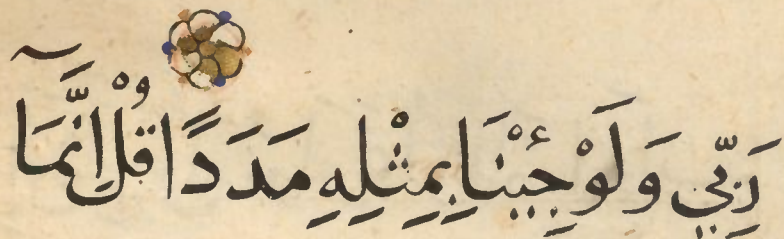 رَبِّي وَلَوْ جِئْنَا بِمِثْلِهِ مَدَدًا قُلْ إِنَّمَآ